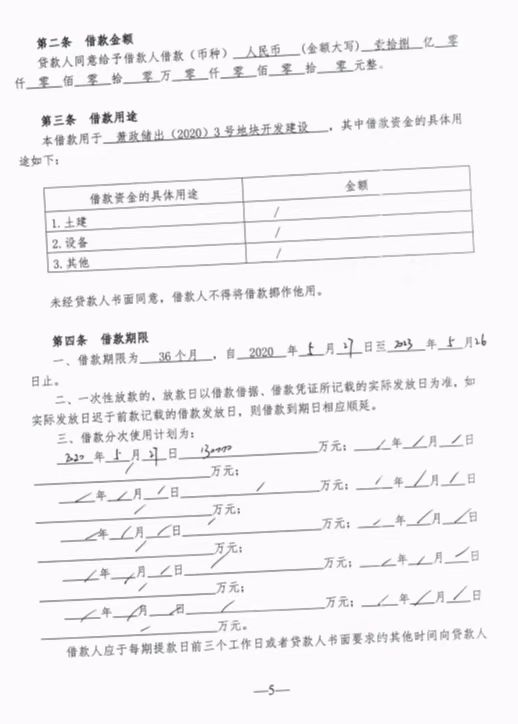 第二条 借款金额
贷款人同意给予借款人借款（币种） 人民币 （金额大写） 壹拾捌 亿 零
仟 零 佰 零 拾 零 万 零 仟 零 佰 零 拾 零 元整。
第三条 借款用途
本借款用于 萧政储出（2020）3号地块开发建设 ，其中借款资金的具体用
途如下：
借款资金的具体用途 金额
1.土建 /
2.设备 /
3.其他 /
未经贷款人书面同意，借款人不得将借款挪作他用。
第四条 借款期限
一、借款期限为 36个月 ，自 2020 年 5 月 27 日至 2023 年 5 月 26
日止。
二、一次性放款的，放款日以借款借据、借款凭证所记载的实际发放日为准，如
实际发放日迟于前款记载的借款发放日，则借款到期日相应顺延。
三、借款分次使用计划为：
2020 年 5 月 27 日 万元； / 年 / 月 / 日
/ 万元；
/ 年 / 月 / 日 / 万元； / 年 / 月 / 日
/ 万元；
/ 年 / 月 / 日 / 万元； / 年 / 月 / 日
/ 万元；
/ 年 / 月 / 日 / 万元； / 年 / 月 / 日
/ 万元；
/ 年 / 月 / 日 / 万元； / 年 / 月 / 日
/ 万元。
借款人应于每期提款日前三个工作日或者贷款人书面要求的其他时间向贷款人
—5—